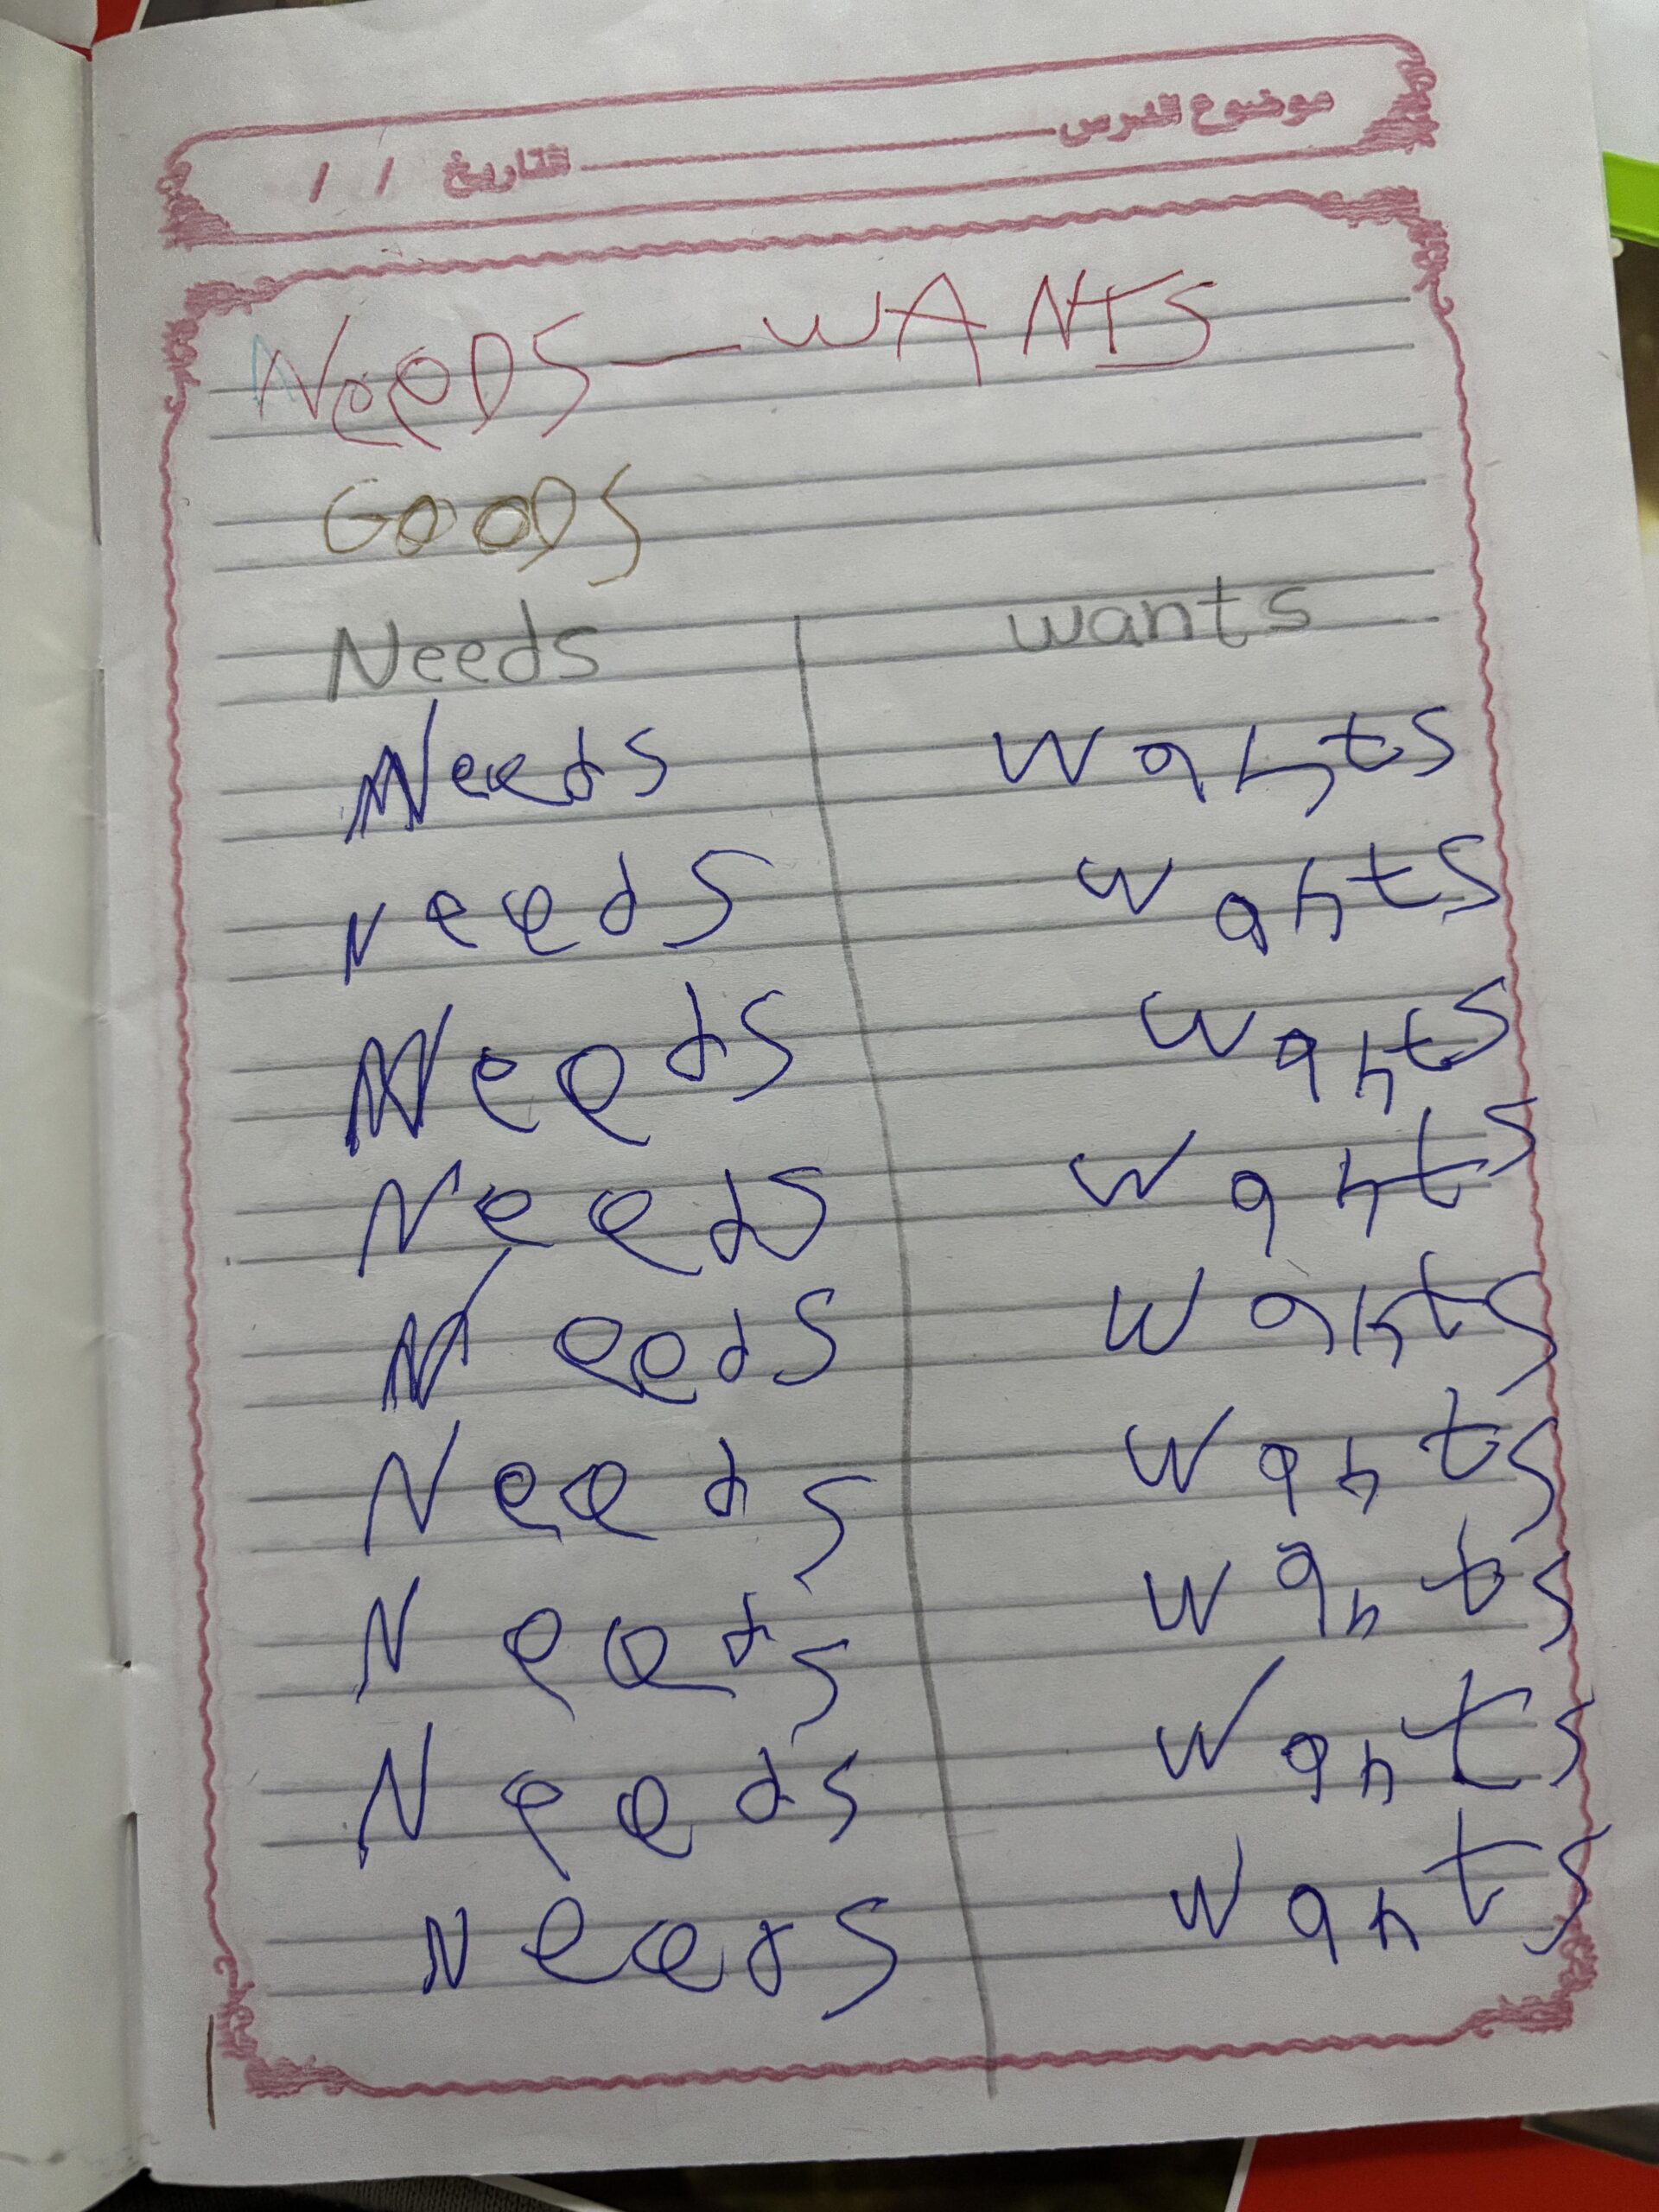 موضوع الدرس التاريخ / /
NeeDS — WANTS
GOODS
Needs wants
Needs wants
needs wants
Needs wants
Needs wants
Needs wants
Needs wants
Needs wants
Needs wants
Needs wants